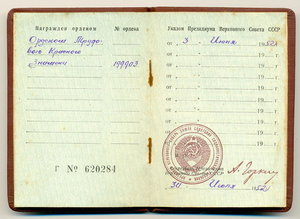 Награжден орденом
№ ордена
Орденом Трудо-
вого Красного
Знамени
199903
Г № 620284
Указом Президиума Верховного Совета СССР
от 3 Июня 195
от 19
от 19
от 19
от 19
от 19
от 19
от 19
А. Горкин
30 Июня 195